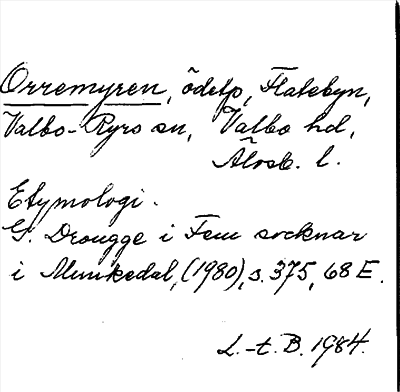 Orremyren, ödetp, Flatebyn,
Valbo-Ryrs sn, Valbo hd,
Älvsb. l.
Etymologi.
G. Drougge i Fem socknar
i Munkedal, (1980), s. 375, 68 E.
L.-t. B. 1984.